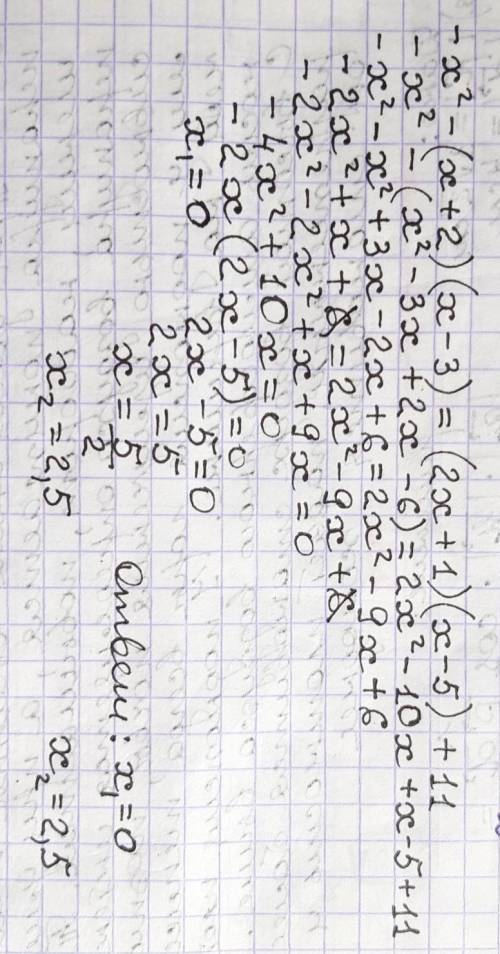 -x² - (x+2)(x-3) = (2x+1)(x-5) + 11
-x² - (x² - 3x + 2x - 6) = 2x² - 10x + x - 5 + 11
-x² - x² + 3x - 2x + 6 = 2x² - 9x + 6
-2x² + x + 6 = 2x² - 9x + 6
-2x² - 2x² + x + 9x = 0
-4x² + 10x = 0
-2x(2x-5) = 0
x₁ = 0 2x - 5 = 0
2x = 5
x = 5/2
x₂ = 2,5
Ответ: x₁ = 0
x₂ = 2,5